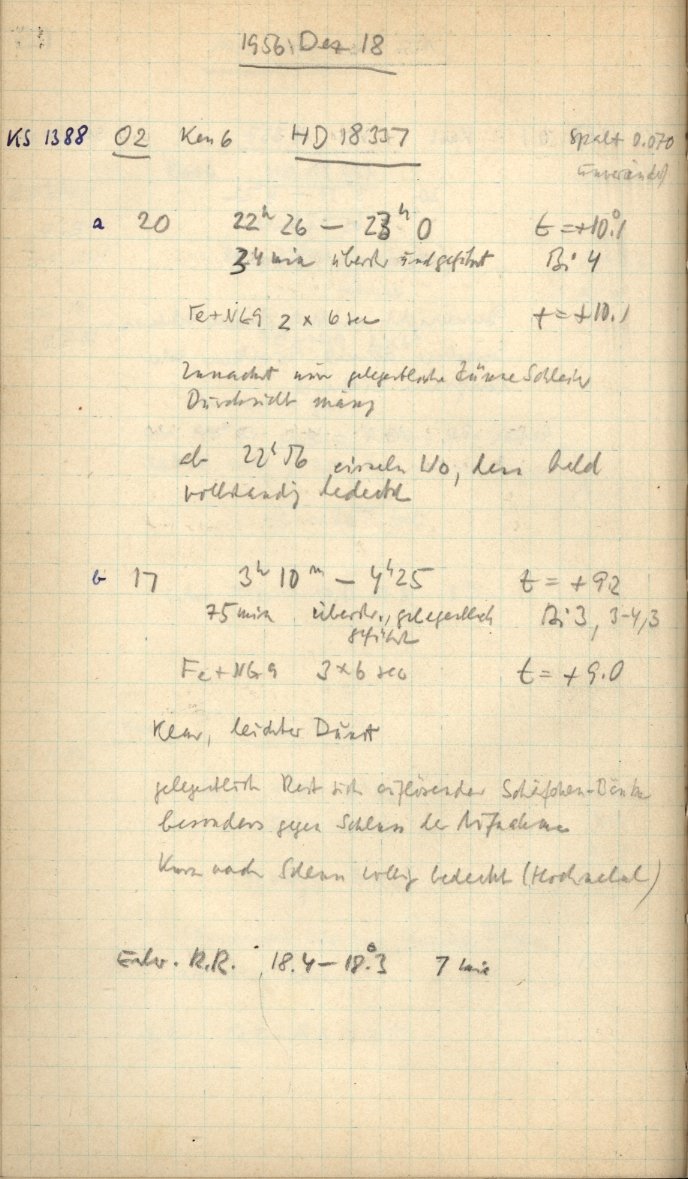 1956 Dez 18
KS 1388 O2 Kam 6 HD 18337 Spalt 0.070
unverändert
a 20 22h 26 – 23h 0 t = +10.°1
34 min überdr. und geführt Bi 4
Fe+NG9 2 x 6 sec t = +10.1
Zunächst nur gelegentliche dünne Schleier
Durchsicht mässig
ab 22h 56 einzeln Wo, dann bald
vollständig bedeckt
b 17 3h 10m – 4h 25 t = +9.2
75 min überdr., gelegentlich Bi 3, 3-4, 3
geführt
Fe+NG9 3 x 6 sec t = +9.0
Klar, leichter Dunst
gelegentlich Rest sich auflösender Schäfchen-Bänke
besonders gegen Schluss der Aufnahme
Kurz nach Schluss völlig bedeckt (Hochnebel)
Entw. R.R. 18.4 – 18.°3 7 min